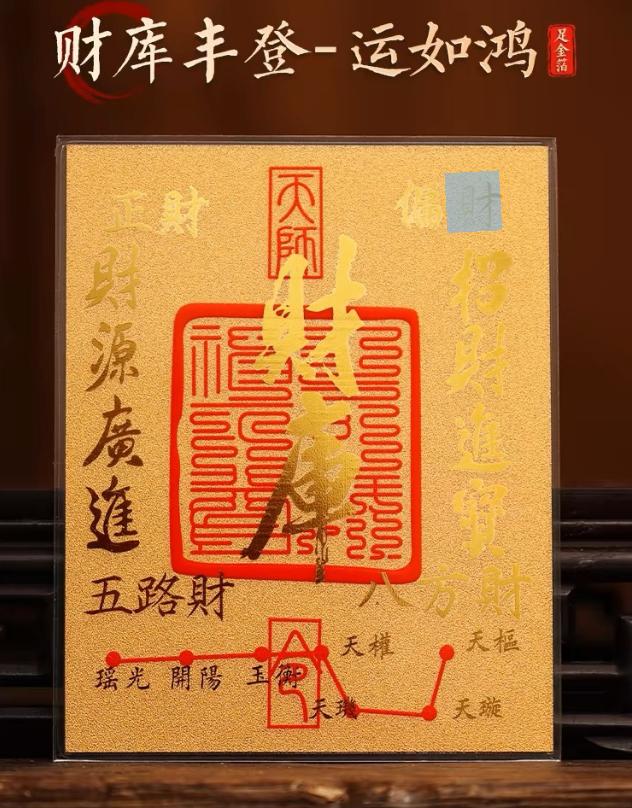 财库丰登-运如鸿
足金箔
正財
天師
偏財
財源廣進
財庫
招財進寶
五路財
八方財
瑶光
開陽
玉衡
天權
天璣
天璇
天樞